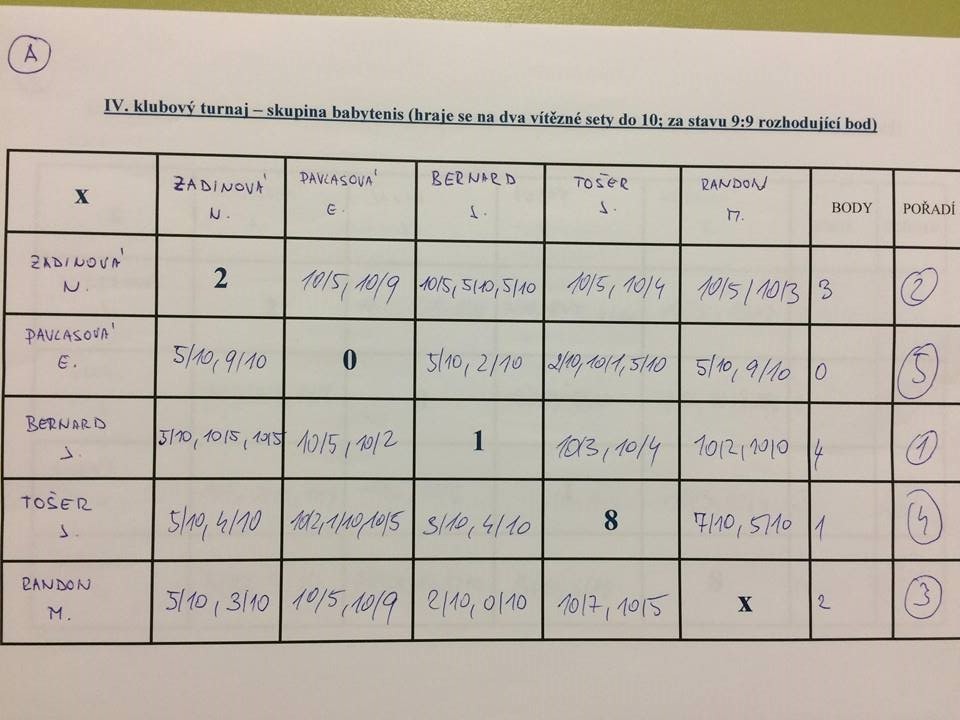 A
IV. klubový turnaj – skupina babytenis (hraje se na dva vítězné sety do 10; za stavu 9:9 rozhodující bod)
x ZADINOVÁ N. PAVLASOVÁ E. BERNARD J. TOŠER J. RANDON M. BODY POŘADÍ
ZADINOVÁ N. 2 10/5, 10/9 10/5, 5/10, 5/10 10/5, 10/4 10/5 / 10/3 3 2
PAVLASOVÁ E. 5/10, 9/10 0 5/10, 2/10 2/10, 10/1, 5/10 5/10, 9/10 0 5
BERNARD J. 5/10, 10/5, 10/5 10/5, 10/2 1 10/3, 10/4 10/2, 10/0 4 1
TOŠER J. 5/10, 4/10 10/2, 1/10, 10/5 3/10, 4/10 8 7/10, 5/10 1 4
RANDON M. 5/10, 3/10 10/5, 10/9 2/10, 0/10 10/7, 10/5 x 2 3